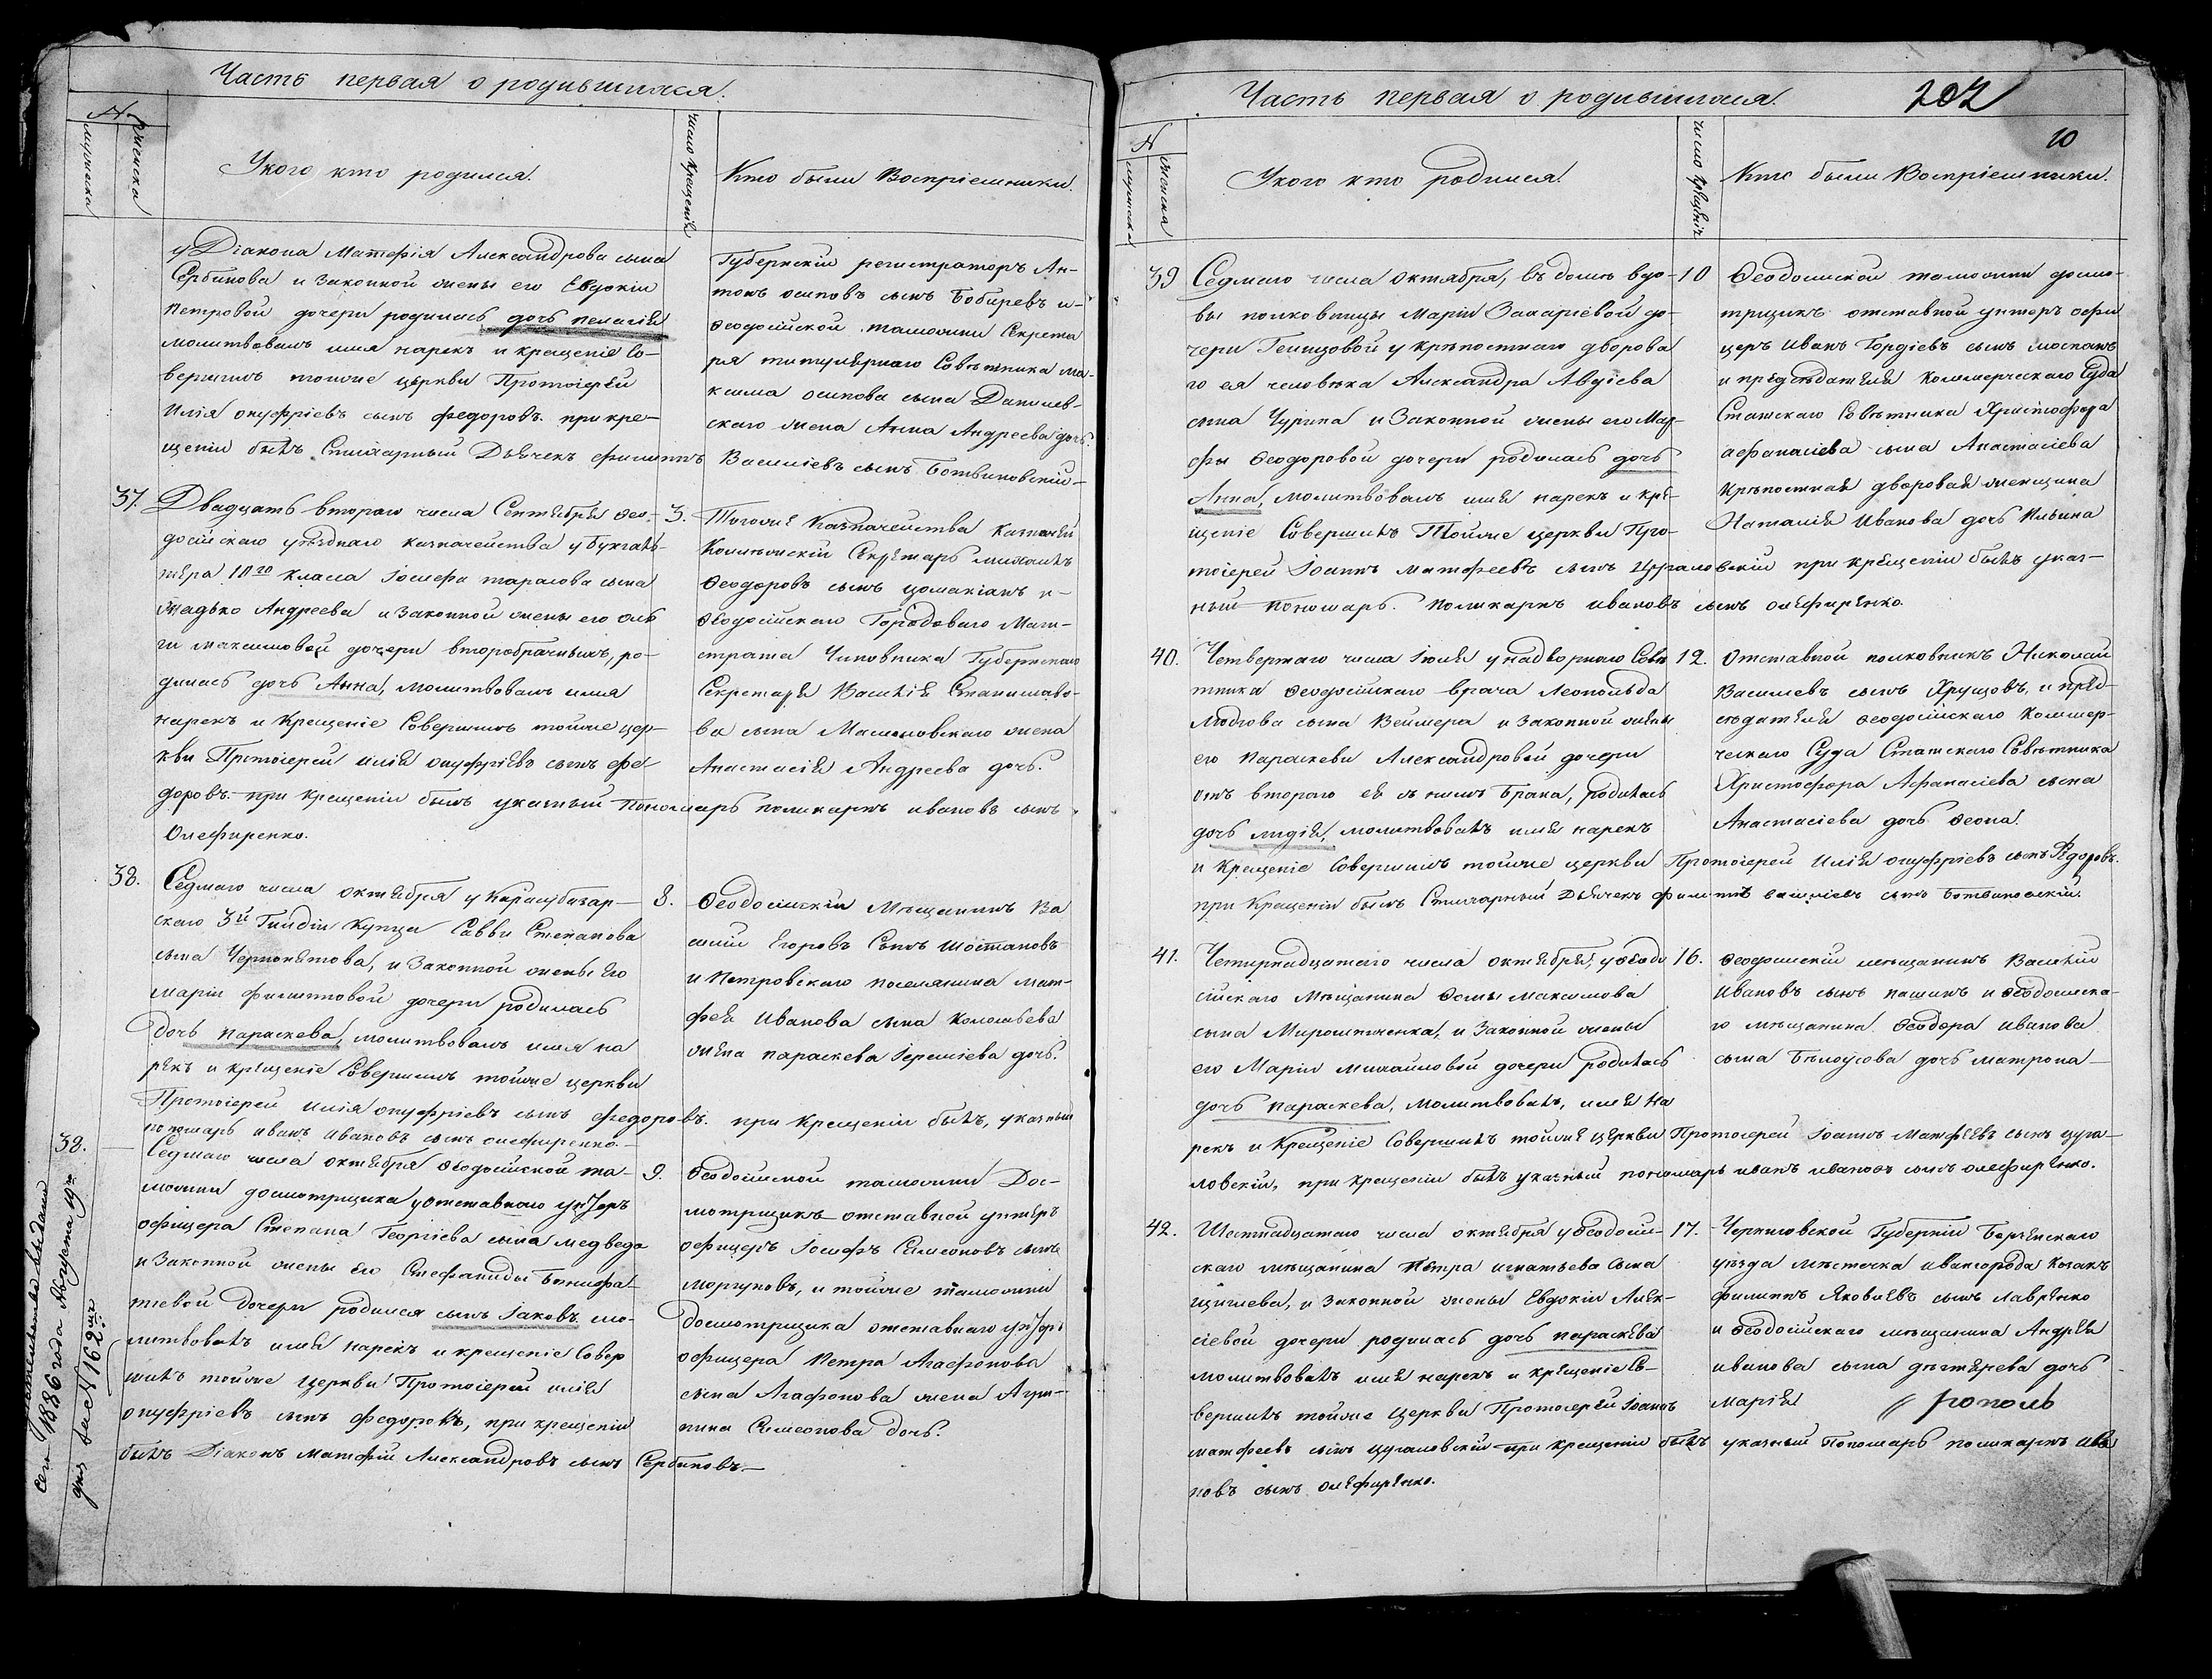 Часть первая о родившихся.
№
мужеска
женска
У кого кто родился.
число крещенія
Кто были Воспріемники.
у Діакона Матфія Александрова сына
Сербинова и законной жены его Евдокіи
Петровой дочери родилась дочь Пелагія
молитвовалъ имя нарекъ и крещеніе Со-
вершилъ тойже церкви Протоіерей
Илія онуфріевъ сынъ Федоровъ. при кре-
щеніи былъ Стихарный Дьячекъ филиппъ Василіевъ сынъ Ботвиновскій
Губернскій регистраторъ Ан-
тонъ осиповъ сынъ Бобыревъ и
Феодосійской таможни Секрета
ря титулярнаго Совѣтника ма-
ксима осипова сына Данилев-
скаго жена Анна Андреева дочь.
37. Двадцать втораго числа Сентября Фео-
досійскаго уѣзднаго казначейства у Бухгал-
тера 10го класса Іосифа тарасова сына
Андреева и законной жены его оль
ги максимовой дочери второбрачныхъ, ро-
дилась дочь Анна, молитвовалъ имя
нарекъ и крещеніе Совершилъ тойже цер-
кви Протоіерей илія онуфріевъ сынъ фе-
доровъ. при крещеніи былъ указный Пономарь поликарпъ ивановъ сынъ
Олефиренко.
3. Тогоже Казначейства Казначей
Секретарь михаилъ
Феодоровъ сынъ и
Феодосійскаго Городоваго Маги-
страта Чиновника Губернскаго
Секретаря Василія Станиславо-
ва сына жена
Анастасія Андреева дочь.
38. Седмаго числа октября у Карасубазар-
скаго 3й Гильдіи Купца Саввы Степанова
сына и законной жены его
маріи филипповой дочери родилась
дочь параскева, молитвовалъ имя на
рекъ и крещеніе Совершилъ тойже церкви
Протоіерей илія онуфріевъ сынъ федоровъ. при крещеніи былъ, указный
пономарь иванъ ивановъ сынъ олефиренко.
8. Феодосійскій Мѣщанинъ Ва
силій Егоровъ Сынъ
и Петровскаго поселянина мат-
фея Иванова сына
жена параскева Іереміева дочь.
38. Седмаго числа октября Феодосійской та-
можни досмотрщика у отставнаго унтеръ
офицера Степана Георгіева сына медведа
и законной жены его Стефаниды Бонифа-
тіевой дочери родился сынъ Іаковъ мо-
литвовалъ имя нарекъ и крещеніе Совер
шилъ тойже церкви Протоіерей илія
онуфріевъ сынъ федоровъ, при крещеніи
былъ Діаконъ матфій Александровъ сынъ Сербиновъ.
9. Феодосійской таможни Дос-
мотрщикъ отставной унтеръ
офицеръ Іосифъ Симеоновъ сынъ
моргуновъ, и тойже таможни
досмотрщика отставнаго унтеръ
офицера Петра Агафонова
сына Агафонова жена Агри-
пина Симеонова дочь.
сего 1886 года Августа 19го
дня за № 162мъ
Часть первая о родившихся.
202
10
№
мужеска
женска
У кого кто родился.
число крещенія
Кто были Воспріемники.
39 Седмаго числа октября, въ домѣ вдо-
вы полковницы Маріи Захаріевой до-
чери у крѣпостнаго дворова
го ея человѣка Александра Авдіева
сына Чурина и Законной жены его Мар-
фы Феодоровой дочери родилась дочь
Анна, молитвовалъ имя нарекъ и кре-
щеніе Совершилъ Тойже церкви Про-
тоіерей Іоаннъ матфеевъ сынъ Цурановскій при крещеніи былъ указ-
ный пономарь. поликарпъ ивановъ сынъ олефиренко.
10 Феодосійской таможни досмо-
трщикъ отставной унтеръ офи
церъ иванъ Гордіевъ сынъ
и предсѣдателя Коммерческаго Суда
Статскаго Совѣтника Христофора
афанасіева сына Анастасіева
крѣпостная дворовая женщина
Наталія Иванова дочь Ильина
40. Четвертаго числа Іюля у надворнаго Совѣ
тника Феодосійскаго врача Леопольда
Людгова сына Веймера и Законной жены
его Параскевы Александровой дочери
отъ втораго ея съ нимъ брака, родилась
дочь лидія, молитвовалъ имя нарекъ
и крещеніе Совершилъ тойже церкви Протоіерей Илія онуфріевъ сынъ Федоровъ.
при крещеніи былъ Стихарный Дьячекъ филиппъ василіевъ сынъ Ботвиновскій.
12. Отставной полковникъ Николай
Василіевъ сынъ Хрущовъ, и пред-
сѣдателя Феодосійскаго Коммер-
ческаго Суда Статскаго Совѣтника
Христофора Афанасіева сына
Анастасіева дочь Феона.
41. Четырнадцатаго числа октября, у Феодо
сійскаго Мѣщанина Фомы максимова
сына Мирошниченка, и Законной жены
его Маріи михайловой дочери родилась
дочь параскева, молитвовалъ, имя на
рекъ и крещеніе Совершилъ тойже церкви Протоіерей Іоаннъ Матфеевъ сынъ цура-
новскій, при крещеніи былъ указный пономарь иванъ ивановъ сынъ олефиренко.
16. Феодосійскій мѣщанинъ Василій
Ивановъ сынъ пашинъ и Феодосійска-
го мѣщанина Феодора иванова
сына Бѣлоусова дочь матрона
42. Шестнадцатаго числа октября у Феодосій-
скаго мѣщанина Петра игнатьева сына
и Законной жены Евдокіи Алек-
сіевой дочери родилась дочь параскева
молитвовалъ имя нарекъ и крещеніе Со-
вершилъ тойже церкви Протоіерей Іоаннъ
матфеевъ сынъ цурановскій при крещеніи былъ указный Пономарь поликарпъ ива
новъ сынъ олефиренко.
17. Черниговской Губерніи Борзенскаго
уѣзда мѣстечка ивангорода Козакъ
филиппъ Яковлевъ сынъ лавренко
и Феодосійскаго мѣщанина Андрея
иванова сына дочь
марія